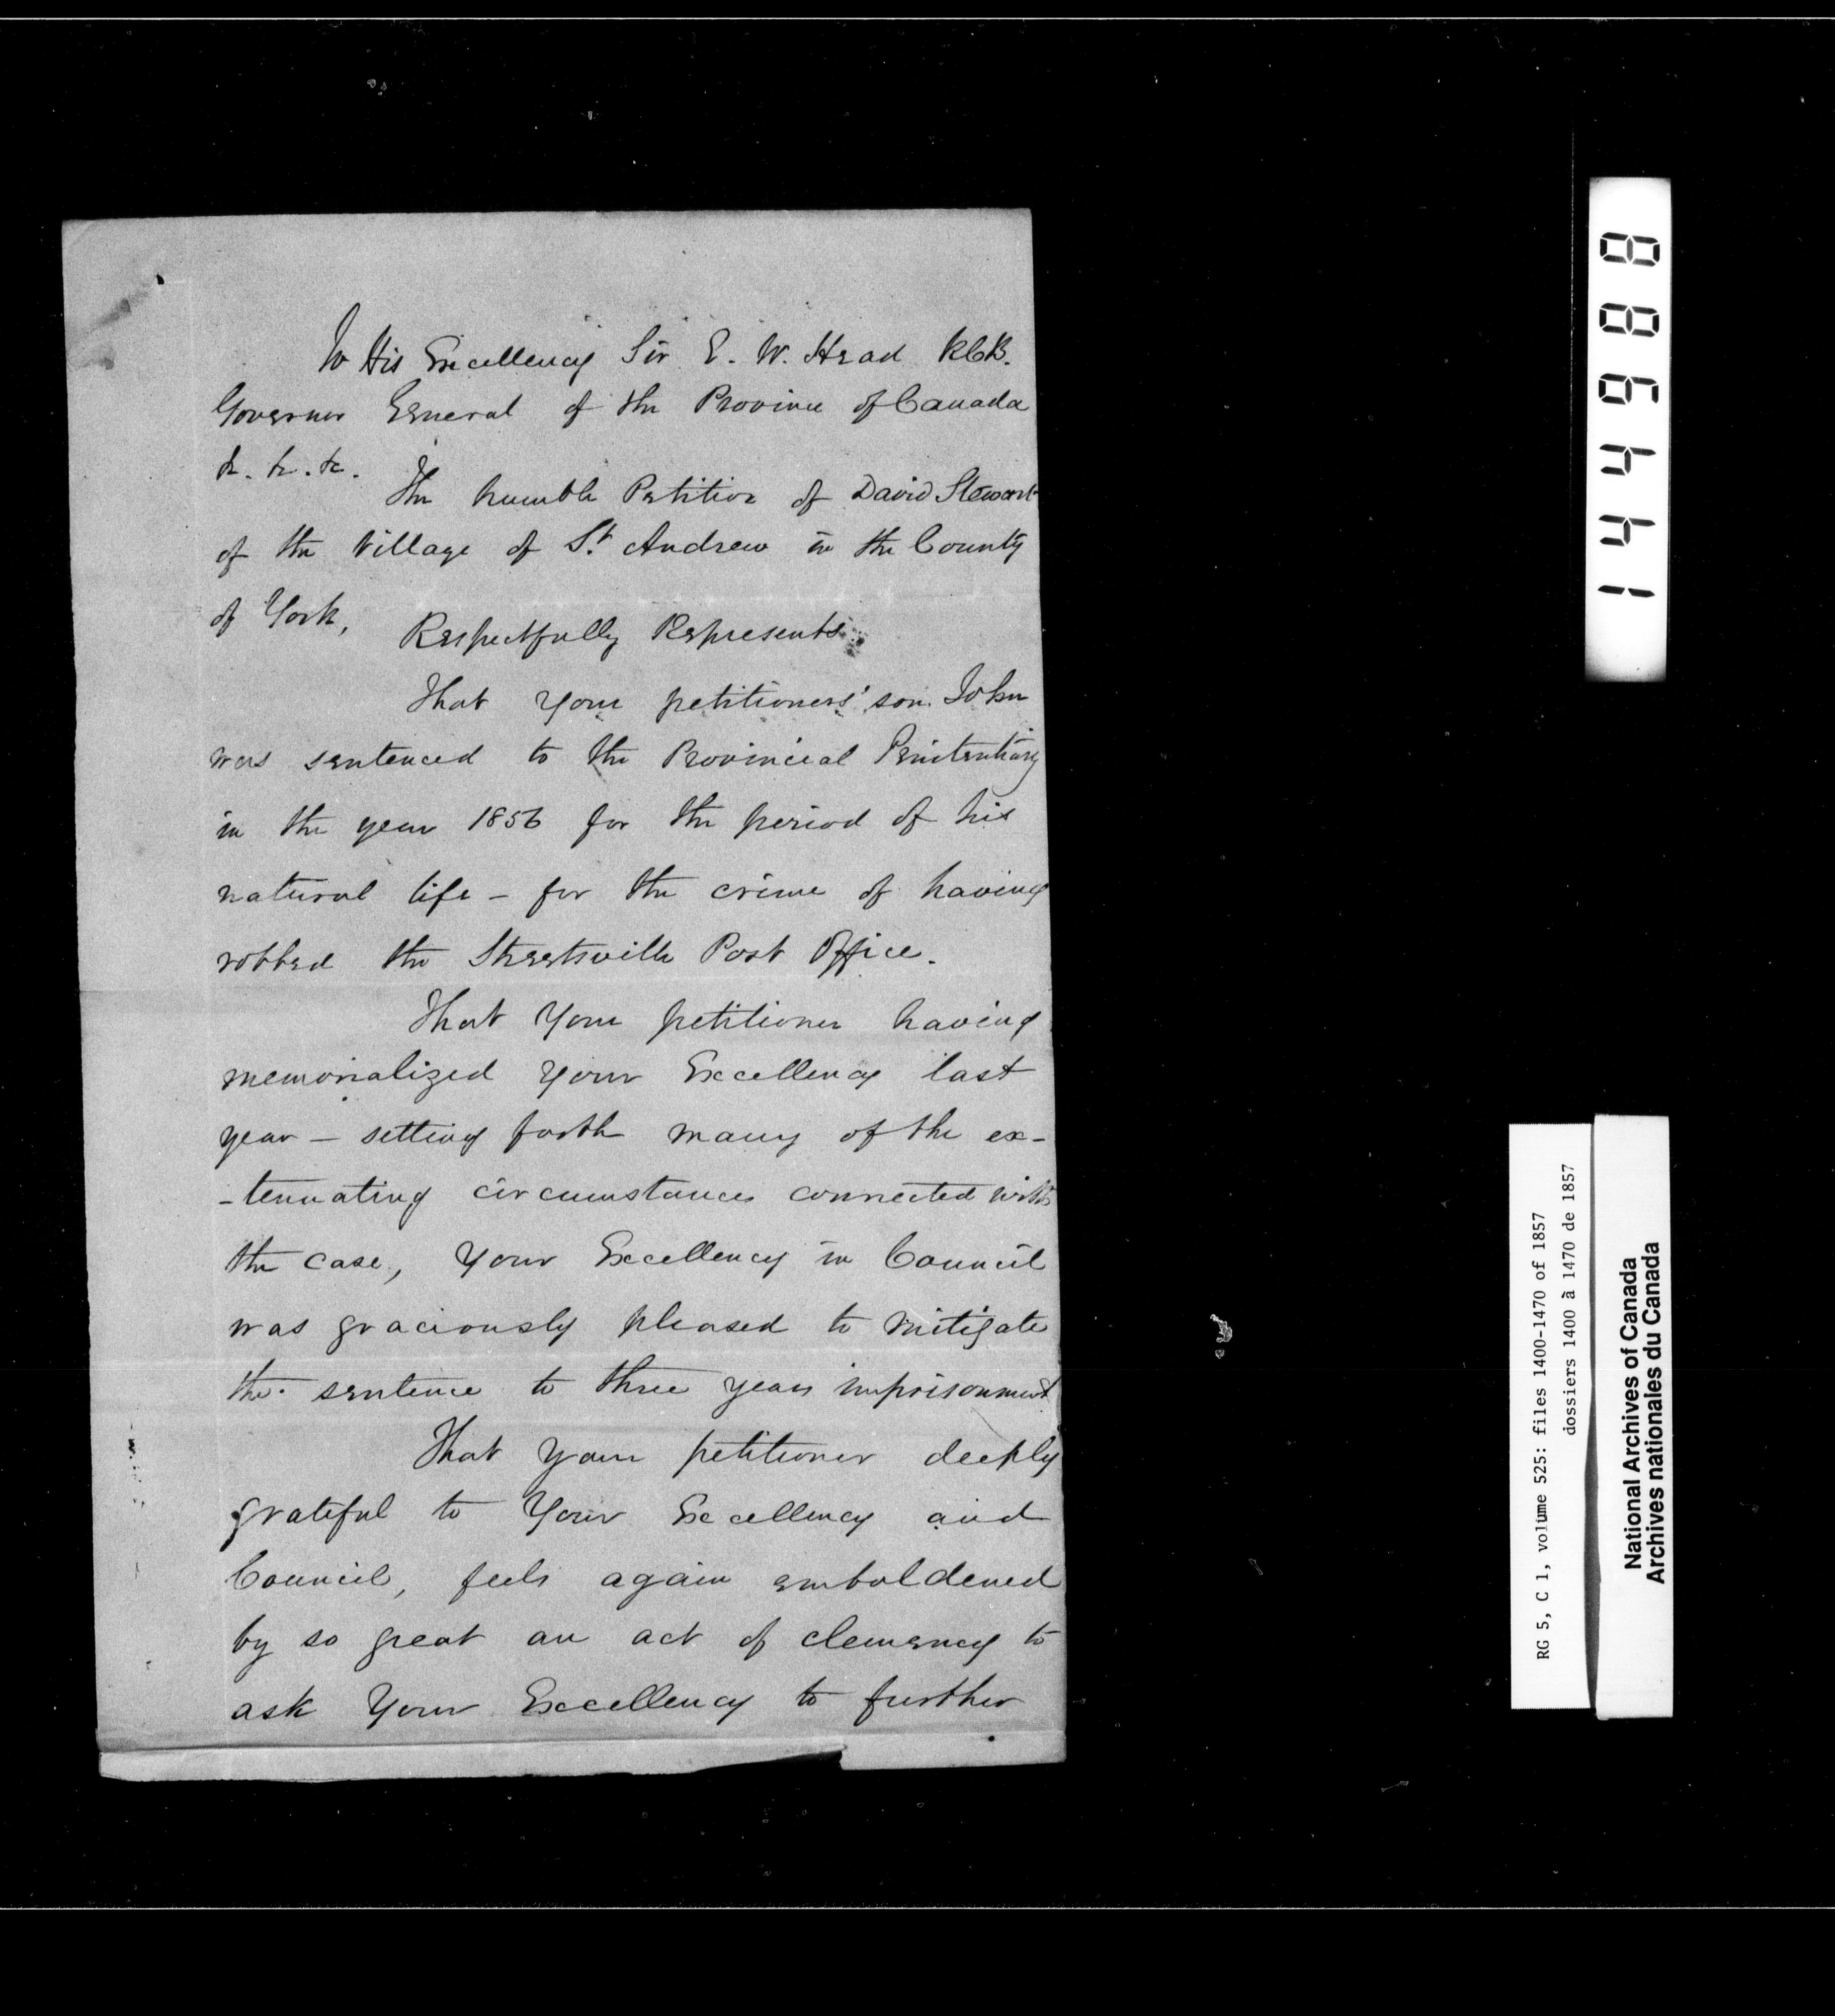 To His Excellency Sir E. W. Head KCB.
Governor General of the Province of Canada
&c. &c. &c.
The humble Petition of David Stewart
of the Village of St. Andrew in the County
of York,
Respectfully Represents
That your petitioners' son John
was sentenced to the Provincial Penitentiary
in the year 1856 for the period of his
natural life - for the crime of having
robbed the Streetsville Post Office.
That Your petitioner having
memorialized Your Excellency last
year - setting forth many of the ex-
-tenuating circumstances connected with
the case, Your Excellency in Council
was graciously pleased to mitigate
the sentence to three years imprisonment
That your petitioner deeply
grateful to Your Excellency and
Council, feels again emboldened
by so great an act of clemency to
ask Your Excellency to further
144988
RG 5, C 1, volume 525: files 1400-1470 of 1857
dossiers 1400 à 1470 de 1857
National Archives of Canada
Archives nationales du Canada